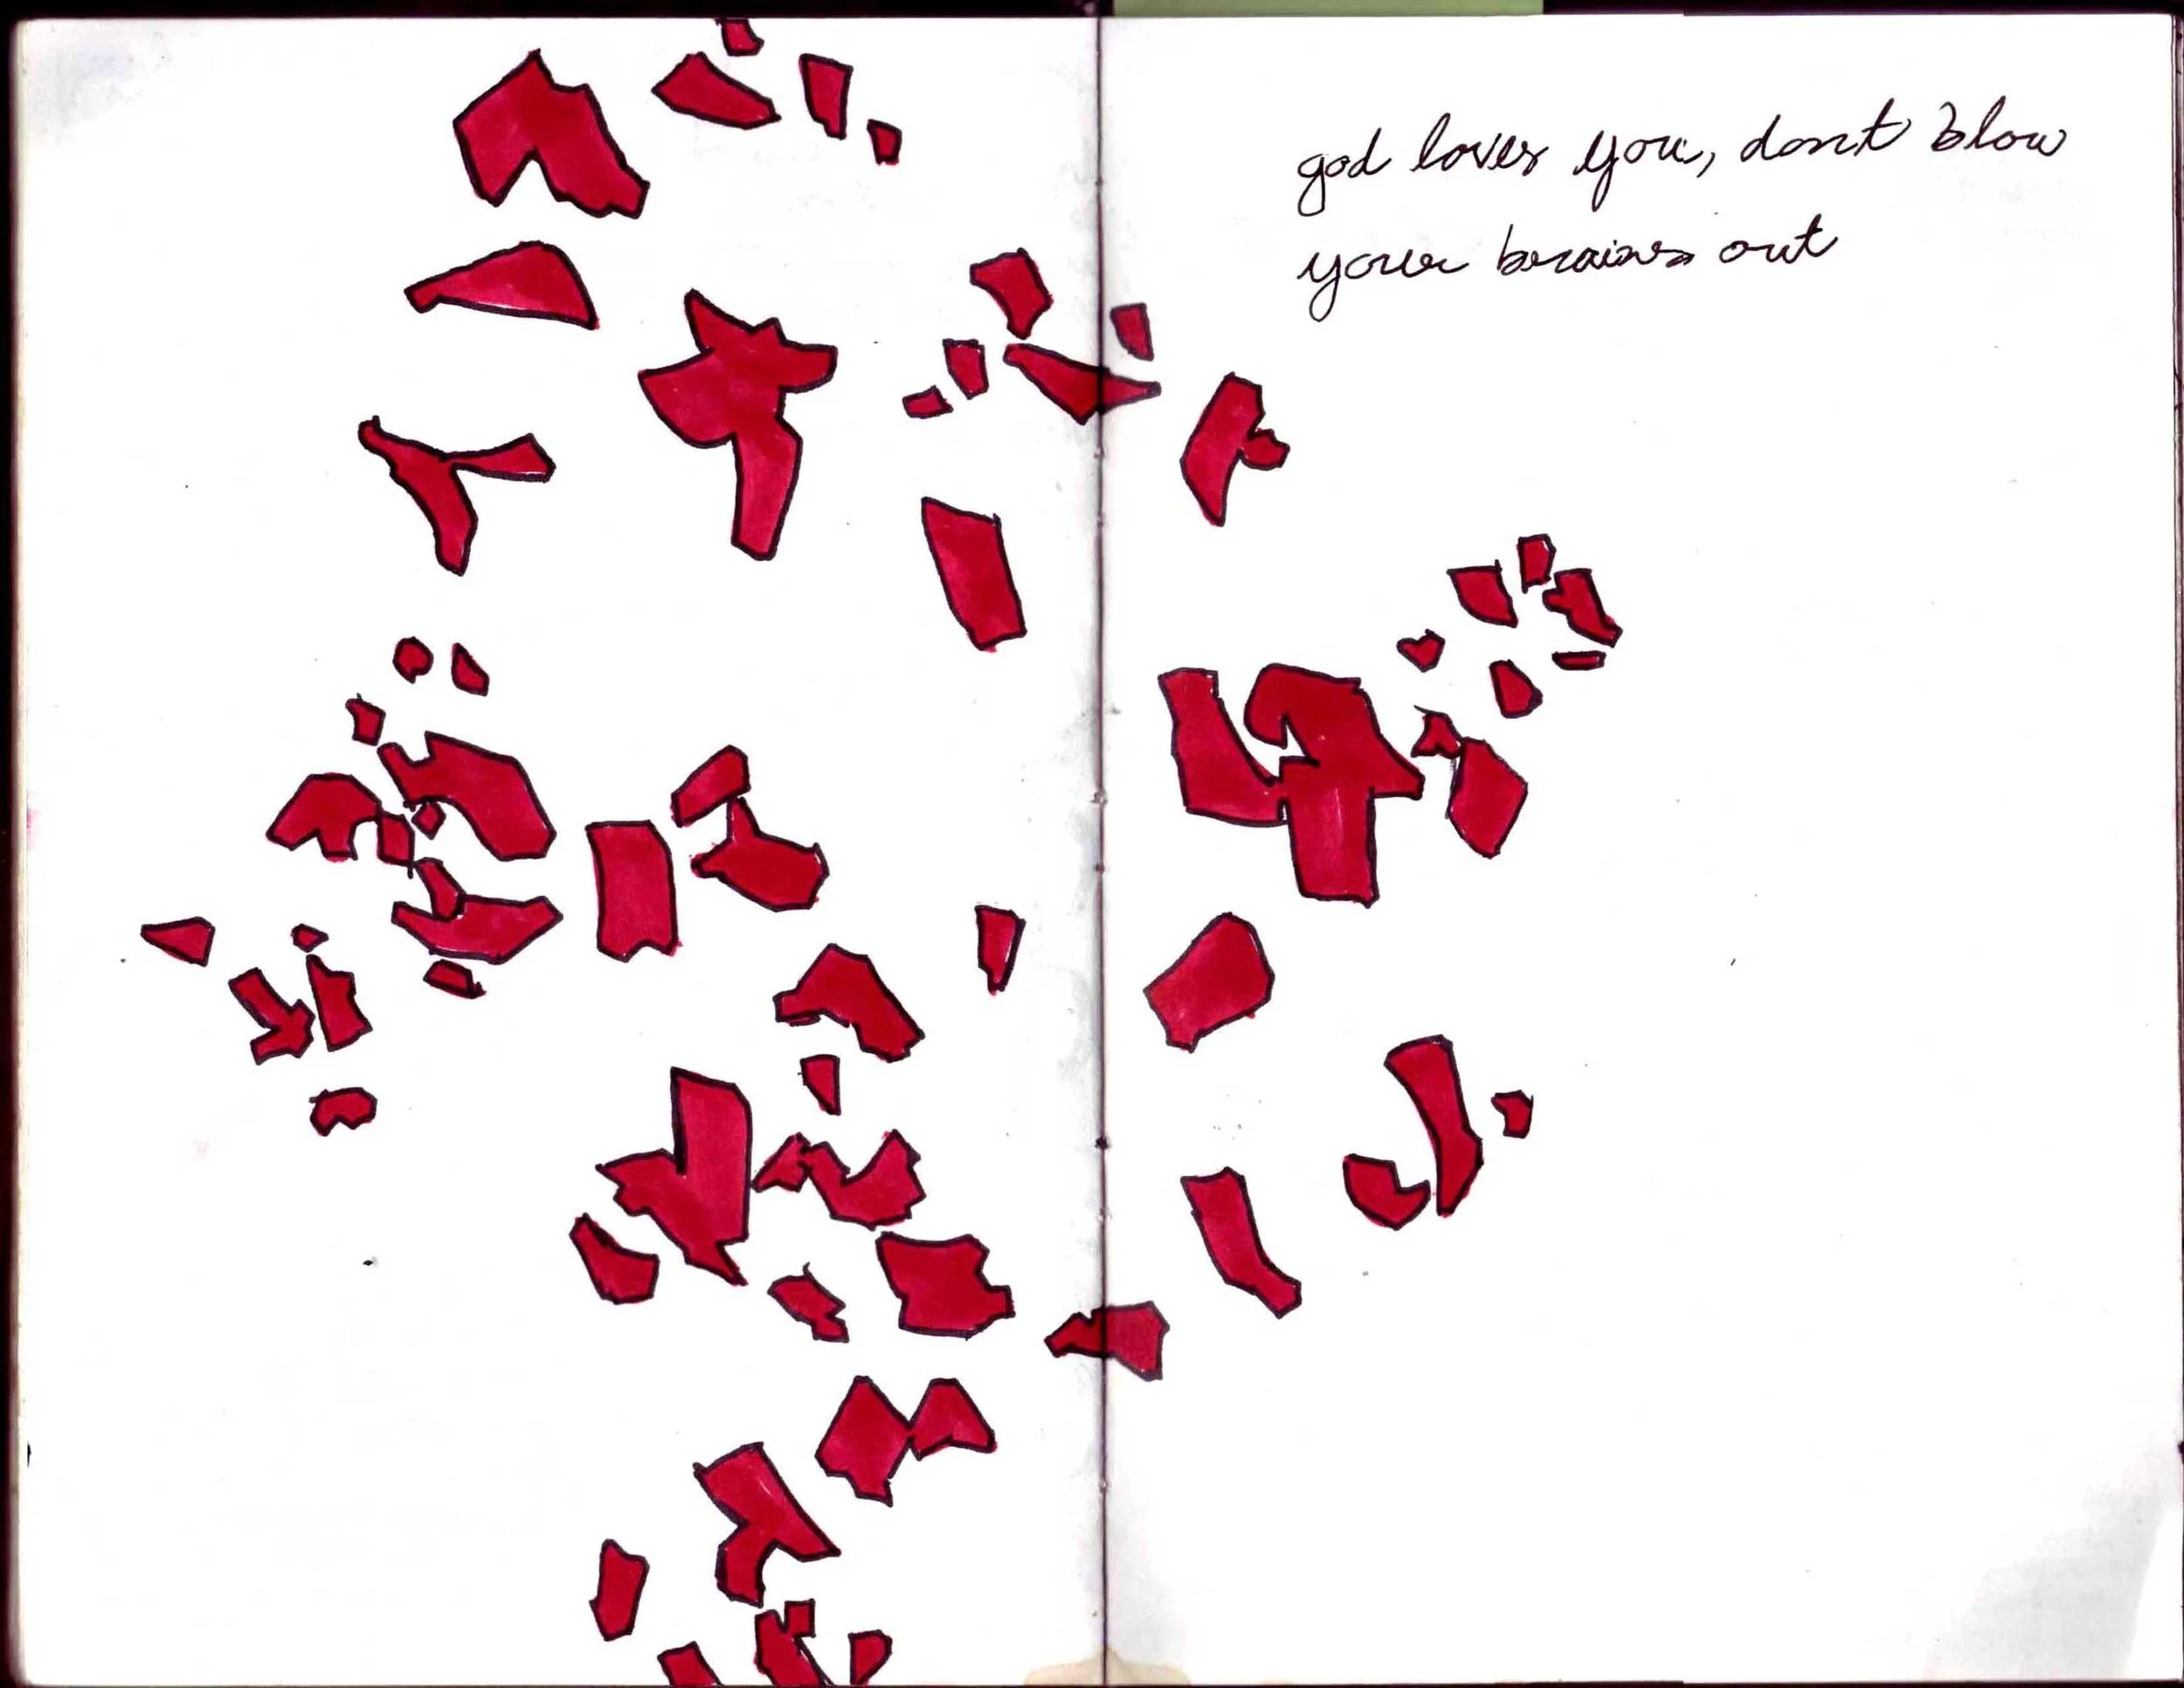 god loves you, dont blow
your brains out